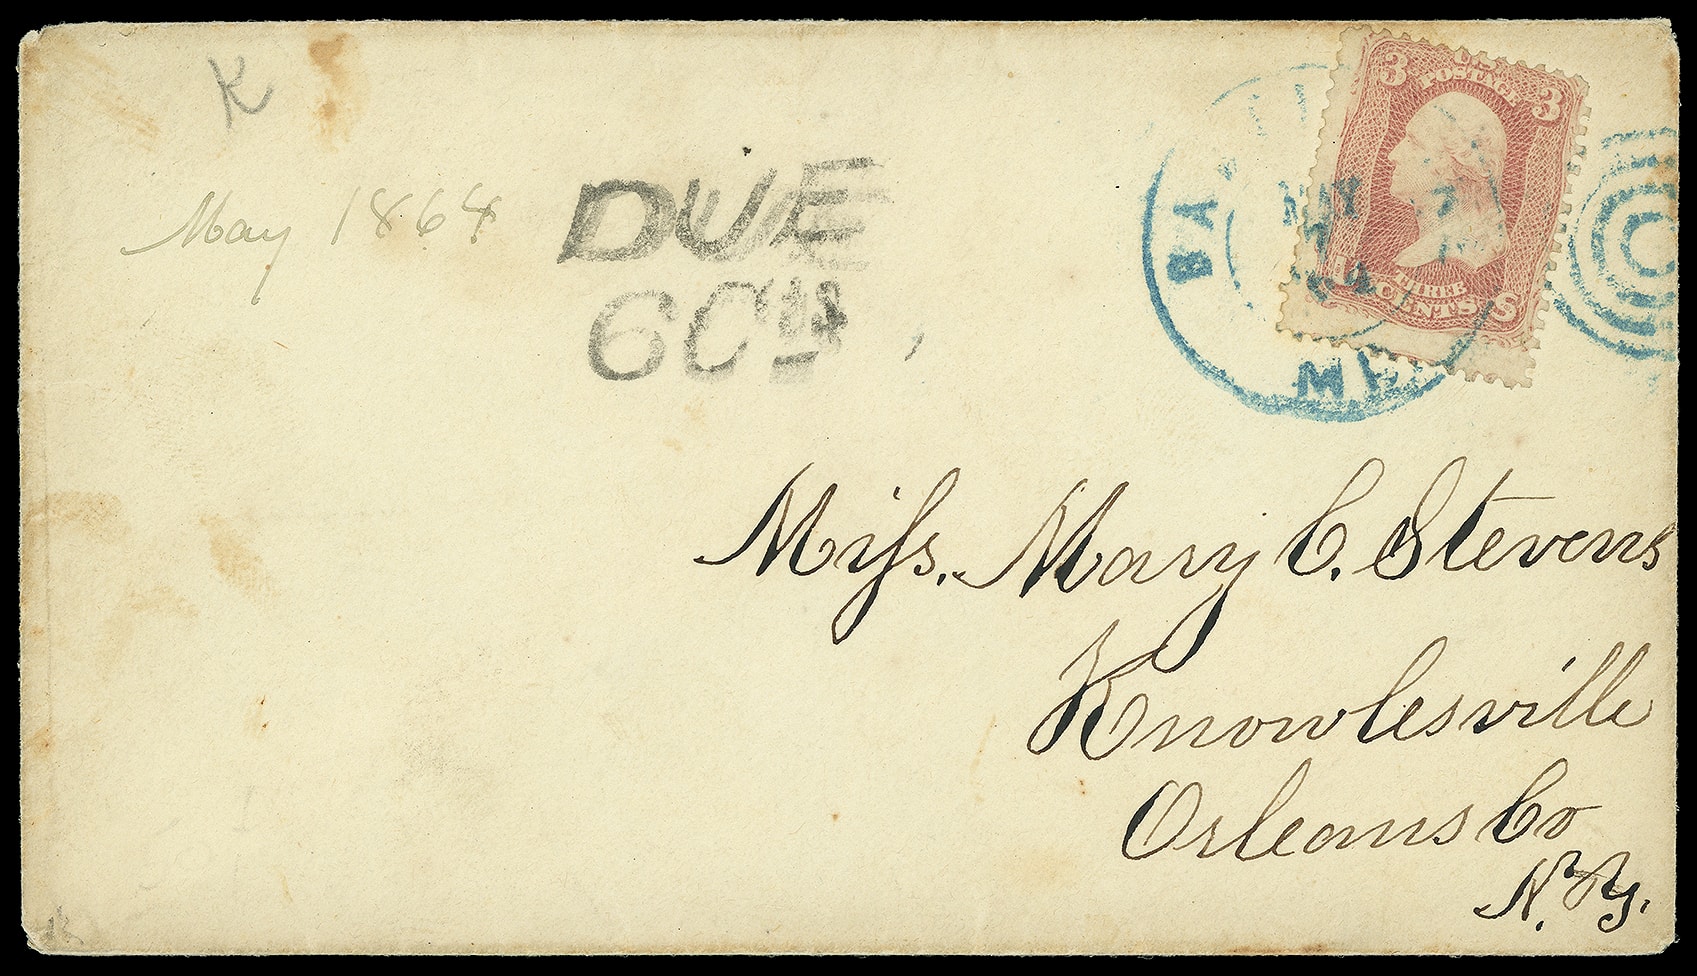 K
May 1864
DUE
6 Cts
3 U.S. POSTAGE 3
THREE
CENTS
BA
MAY
MD
Miſs. Mary C. Stevens
Knowlesville
Orleans Co
N. Y.